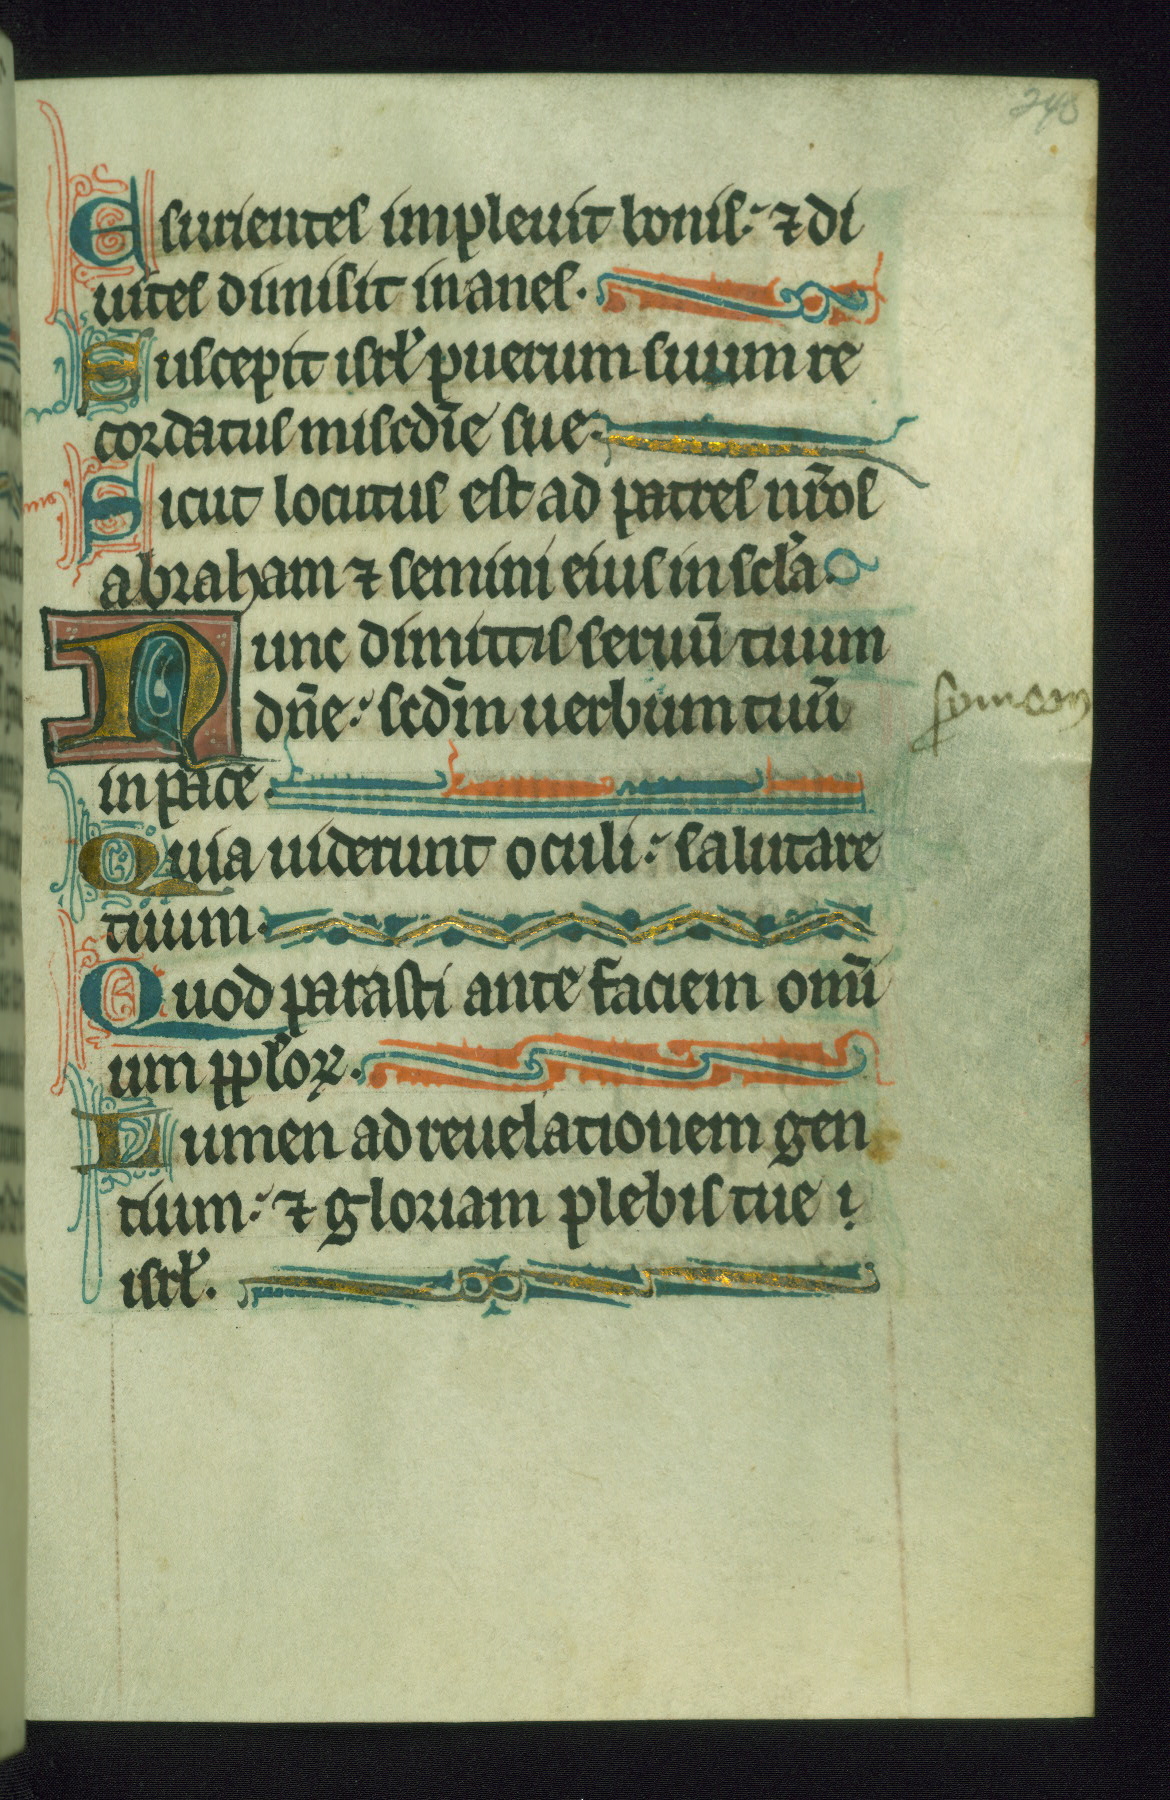 Esurientes impleuit bonis: ⁊ di
uites dimisit inanes.
Suscepit isrl' puerum suum re
cordatus miscdīe sue.
Sicut locutus est ad patres nr̄os
abraham ⁊ semini eius in scl'a.
Nunc dimittis seruū tuum
dn̄e: scdm̄ uerbum tuū
in pace.
Quia uiderunt oculi: salutare
tuum.
Quod parasti ante faciem omī
um ppl'oꝝ.
Lumen ad reuelationem gen
tium: ⁊ gloriam plebis tue i
isrl'.
symeon